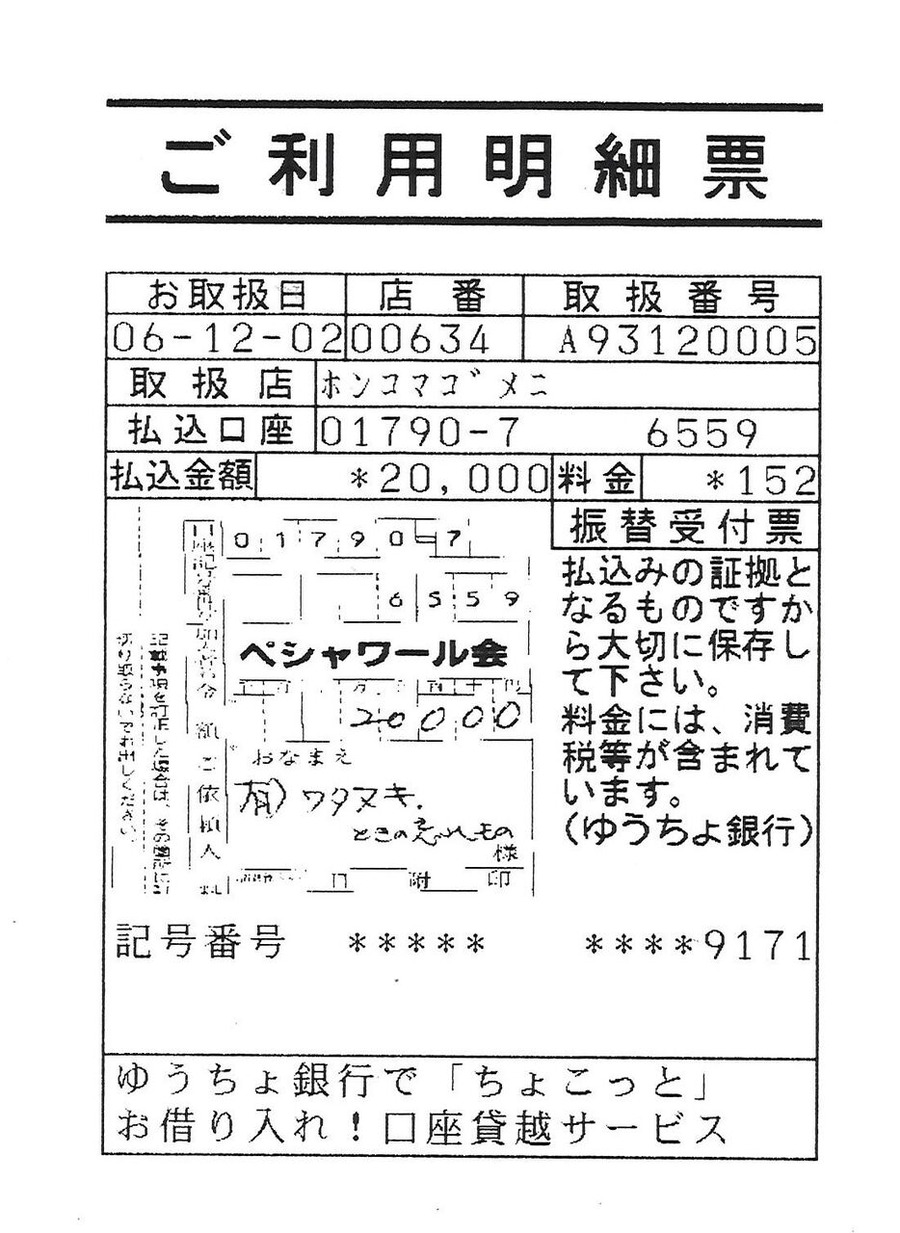 ご利用明細票
お取扱日 店番 取扱番号
06-12-02 00634 A93120005
取扱店 ホンコマゴメニ
払込口座 01790-7 6559
払込金額 *20,000 料金 *152
振替受付票
払込みの証拠と
なるものですか
ら大切に保存し
て下さい。
料金には、消費
税等が含まれて
います。
(ゆうちょ銀行)
口座記号番号
01790-7
6559
加入者名
ペシャワール会
金額
20000
ご依頼人
おなまえ
有)ワタヌキ.
様
日附印
記載事項を訂正した場合は、その箇所に
切り取らないでお出しください。
記号番号 ***** ****9171
ゆうちょ銀行で「ちょこっと」
お借り入れ!口座貸越サービス